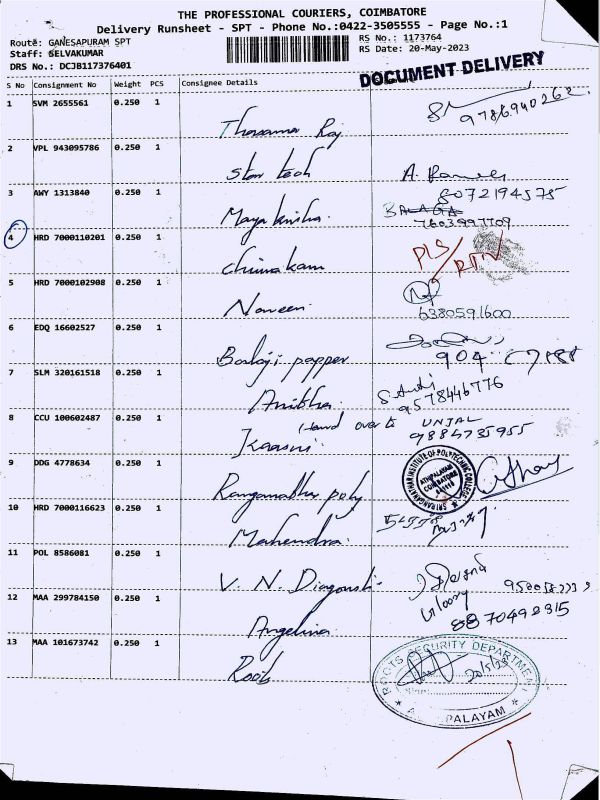 THE PROFESSIONAL COURIERS, COIMBATORE
Delivery Runsheet - SPT - Phone No.:0422-3505555 - Page No.:1
Route: GANESAPURAM SPT
RS No.: 1173764
Staff: SELVAKUMAR
RS Date: 20-May-2023
DRS No.: DCJB117376401
DOCUMENT DELIVERY
S No Consignment No Weight PCS Consignee Details
1 SVM 2655561 0.250 1
9786940262
2 VPL 943095786 0.250 1
Star tech
8072194575
3 AWY 1313840 0.250 1
Mayakrisha
7603997709
4 HRD 7000110201 0.250 1
Chinnakani
5 HRD 7000102908 0.250 1
Naveen
6380591600
6 EDQ 16602527 0.250 1
Balaji papper 904
7 SLM 320161518 0.250 1
Anitha 9578446776
8 CCU 100602487 0.250 1
Hand over to UNJAL
9884735955
9 DDG 4778634 0.250 1
SRI RANGANATHAR INSTITUTE OF POLYTECHNIC COLLEGE
ATHIPALAYAM
COIMBATORE
Ranganathar poly
10 HRD 7000116623 0.250 1
Mahendra
11 POL 8586081 0.250 1
V. N. Diagonsti
12 MAA 299784150 0.250 1
8870492315
Angelina
13 MAA 101673742 0.250 1
Roots
ROOTS SECURITY DEPARTMENT
20/5/23
PALAYAM